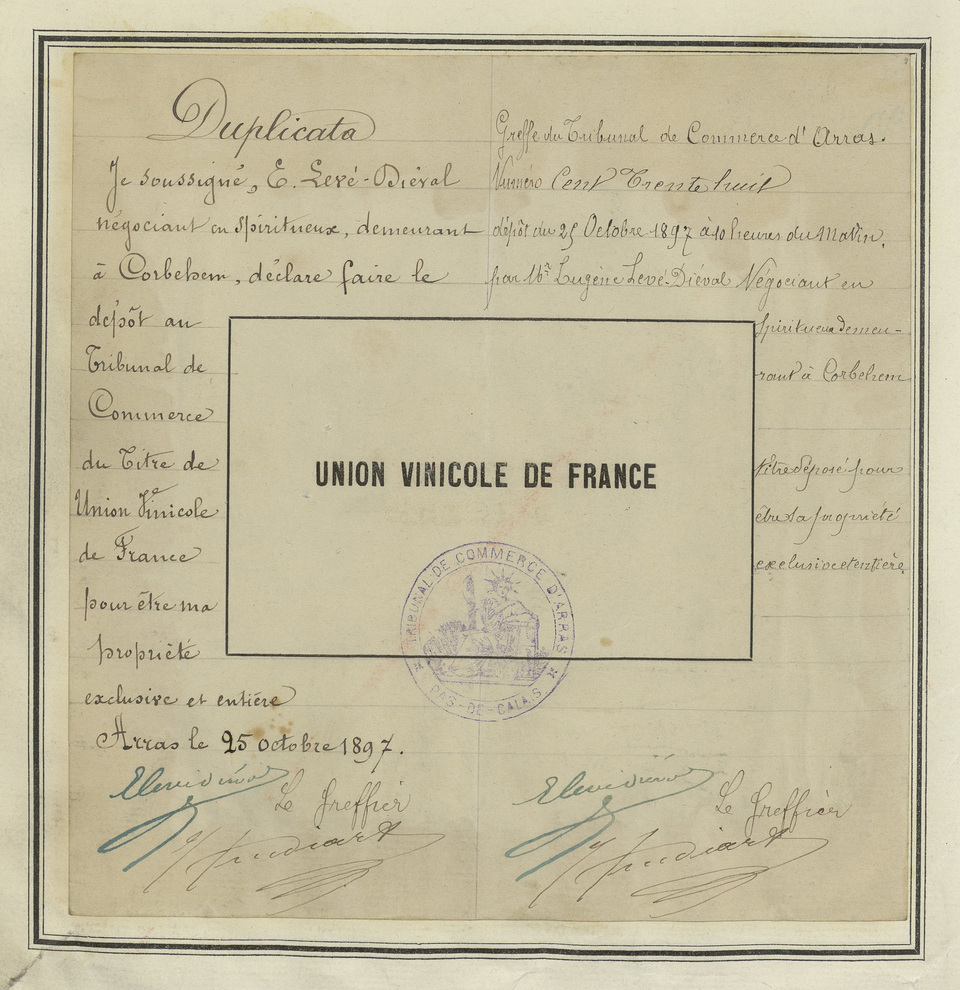 Duplicata
Je soussigné, E. Levé-Diéval
négociant en spiritueux, demeurant
à Corbehem, déclare faire le
dépôt au
Tribunal de
Commerce
du Titre de
Union Vinicole
de France
pour être ma
propriété
exclusive et entière
Arras le 25 octobre 1897.
Le Greffier
Greffe du Tribunal de Commerce d'Arras.
Numéro Cent Trente huit
dépôt du 25 Octobre 1897 à 10 heures du Matin,
par Mr Eugène Levé-Diéval Négociant en
spiritueux demeu-
rant à Corbehem
titre déposé pour
être sa propriété
exclusive et entière
Le Greffier
UNION VINICOLE DE FRANCE
TRIBUNAL DE COMMERCE D'ARRAS
PAS-DE-CALAIS